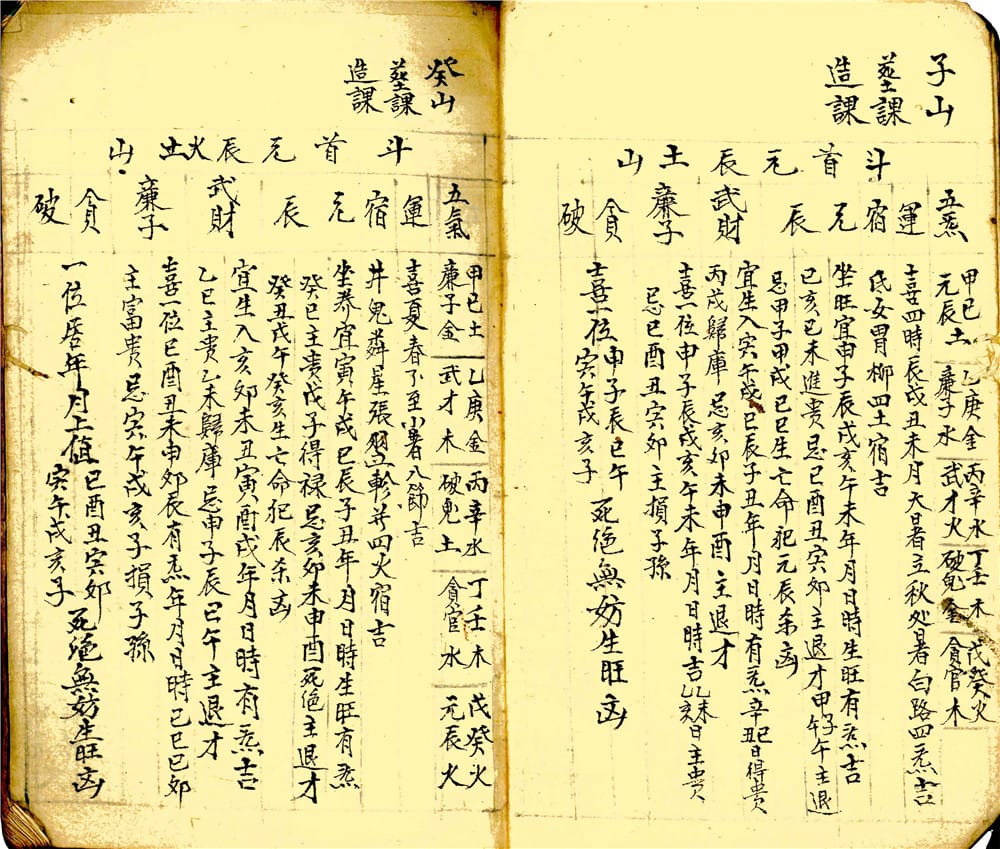 子山
塟課
造課
斗首元辰土山
五炁
運
宿
元辰
武財
廉子
貪
破
甲巳土
元辰土
乙庚金
廉子水
丙辛水
武才火
丁壬木
破鬼金
戊癸火
貪官木
喜四時辰戌丑未月大暑立秋处暑白路四炁吉
氐女胃柳四土宿吉
坐旺宜申子辰戌亥午未年月日時生旺有炁吉
巳亥巳未進貴忌巳酉丑寅卯主退才甲子午主退
忌甲子甲戌巳巳生亡命犯元辰杀凶
宜生入寅午戌巳辰子丑年月日時有炁辛丑巳日得貴
丙戌歸庫忌亥卯未申酉主退才
喜一位申子辰戌亥午未年月日時吉乙未乙亥日主貴
忌巳酉丑寅卯主損子孫
喜一位申子辰巳午
寅午戌亥子
死絶無妨生旺凶
癸山
塟課
造課
斗首元辰火土山
五氣
運
宿
元辰
武財
廉子
貪
破
甲巳土
廉子金
乙庚金
武才木
丙辛水
破鬼土
丁壬木
貪官水
戊癸火
元辰火
喜夏春了至小暑八節吉
井鬼犇星張翌軫并四火宿吉
坐养宜寅午戌巳辰子丑年月日時生旺有炁
癸巳主貴戊子得禄忌亥卯未申酉死绝主退才
癸丑戊午癸亥生亡命犯辰杀凶
宜生入亥卯未丑寅酉戌年月日時有炁吉
乙巳主貴乙未歸庫忌申子辰巳午主退才
喜一位巳酉丑未申卯辰有炁年月日時巳巳卯
主富貴忌寅午戌亥子損子孫
一位居年月上值
巳酉丑寅卯
寅午戌亥子
死絶無妨生旺凶